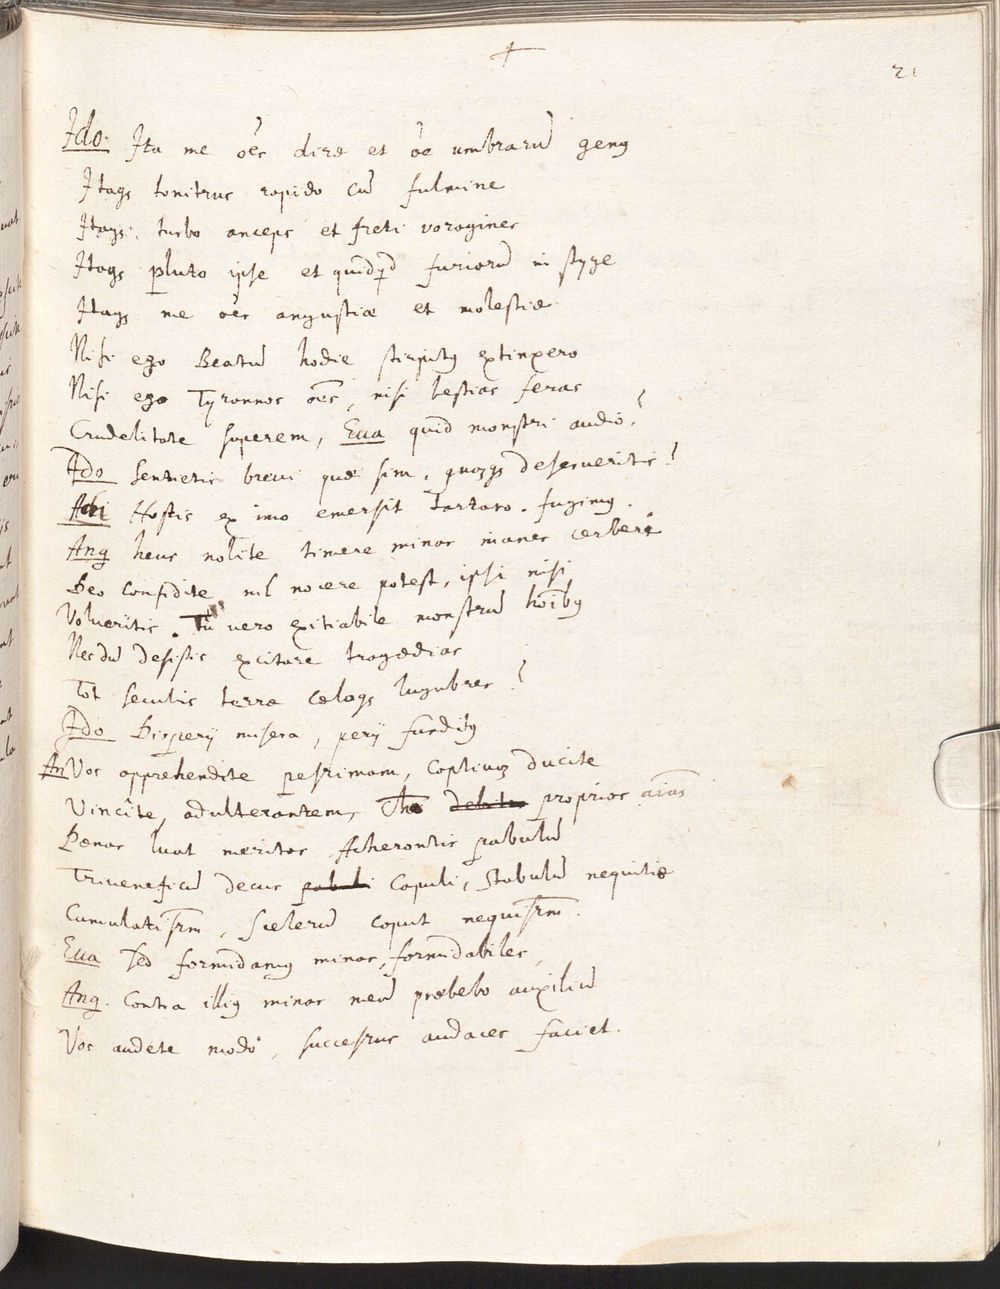 21
Ido. Ita me oēs diræ et oē umbrarū genꝰ
Itaqꝫ tonitrus rapido cū fulmine
Itaqꝫ turbo anceps et freti voragines
Itaqꝫ pluto ipse et quidqd furiarū in styge
Itaqꝫ me oēs angustiæ et molestiæ
Nisi ego Beatū hodie stirpitꝰ extinxero
Nisi ego Tyrannos oēs, nisi bestias feras
Crudelitate superem, Eua quid monstri audio?
Ido Sentietis brevi quæ sim, deserveritis!
Hostis ex imo emersit Tartaro. fugimꝰ.
Ang heus nolite timere minas inanes cerberi
Deo confidite nil nocere potest, ipsi nisi
Volueritis. Tu vero exitiabile monstrū hoībꝰ
Necdū desistis excitare tragædias
Tot seculis terræ cæloqꝫ lugubres?
Ido Disperij misera, perij funditꝰ
An Vos apprehendite pessimam, captivā ducite
Vincite, adulterantem, proprios aīas
Pœnas luat meritas Acherontis pabulū
Triueneficū decus pabuli Capuli, Stabulū nequitiæ
Cumulatissm̄, Scelerū caput nequissm̄.
Eua Sed formidamꝰ minas, formidabiles,
Ang. Contra illiꝰ minas meū præbebo auxiliū
Vos audete modo, successus audaces faciet.